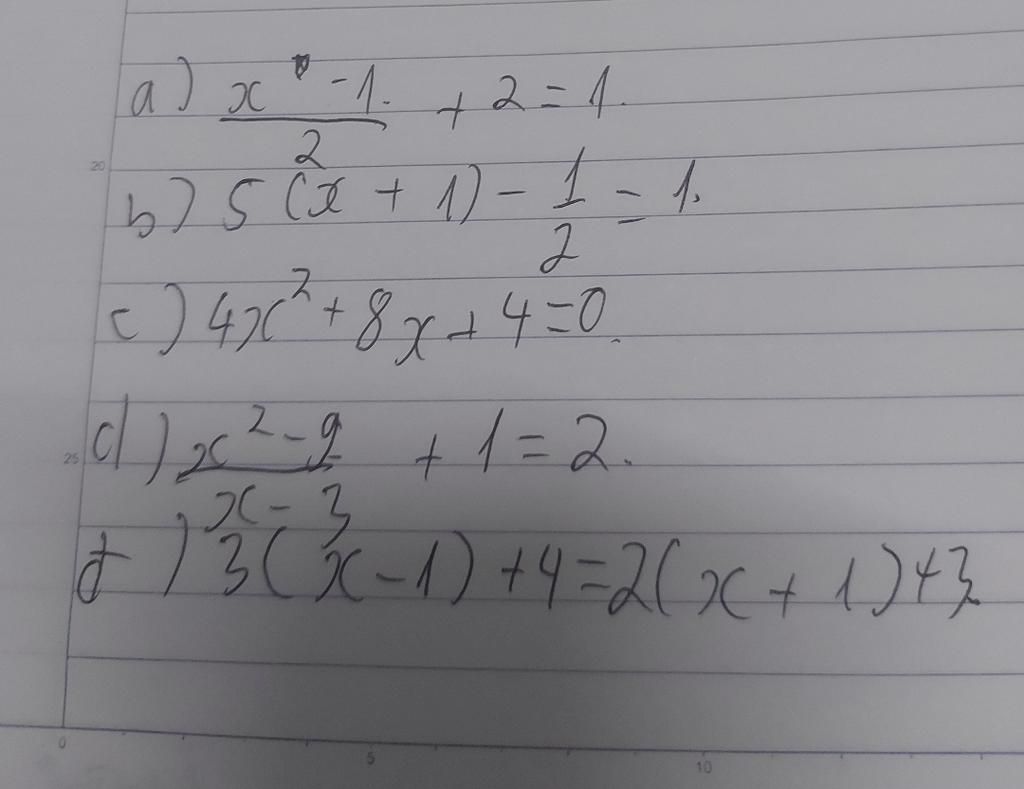 a) (x - 1)/2 + 2 = 1.
b) 5(x + 1) - 1/2 = 1.
c) 4x² + 8x + 4 = 0.
d) (x² - 9)/(x - 3) + 1 = 2.
f) 3(x - 1) + 4 = 2(x + 1) + 3
20
25
0 5 10